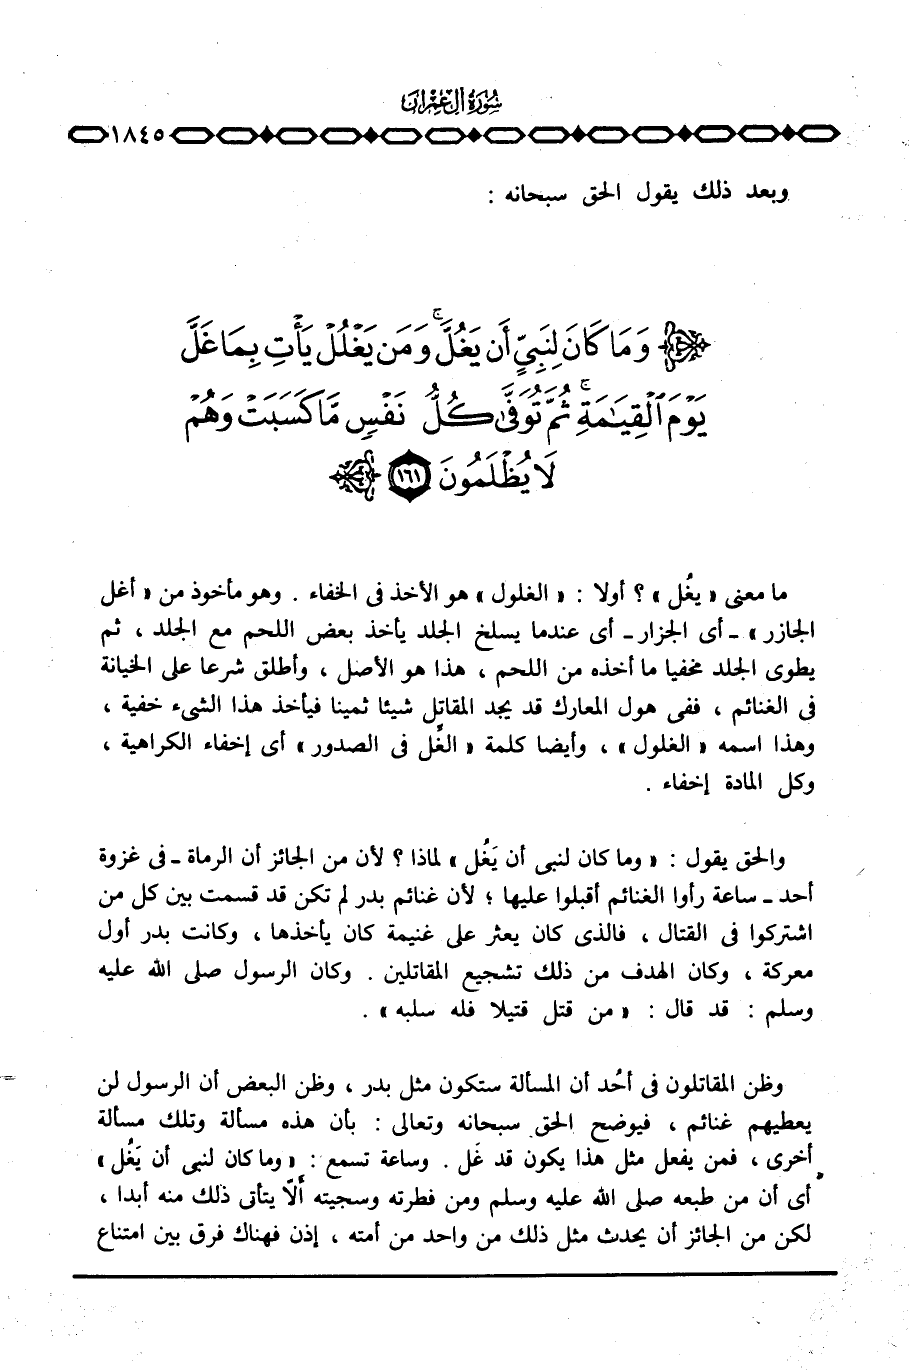 سورة آل عمران
١٨٤٥
وبعد ذلك يقول الحق سبحانه :
وَمَا كَانَ لِنَبِيٍّ أَن يَغُلَّ ۚ وَمَن يَغْلُلْ يَأْتِ بِمَا غَلَّ
يَوْمَ الْقِيَـٰمَةِ ۚ ثُمَّ تُوَفَّىٰ كُلُّ نَفْسٍ مَّا كَسَبَتْ وَهُمْ
لَا يُظْلَمُونَ ١٦١
ما معنى « يغُل » ؟ أولا : « الغلول » هو الأخذ فى الخفاء . وهو مأخوذ من « أغل
الجازر » ـ أى الجزار ـ أى عندما يسلخ الجلد يأخذ بعض اللحم مع الجلد ، ثم
يطوى الجلد مخفيا ما أخذه من اللحم ، هذا هو الأصل ، وأطلق شرعا على الخيانة
فى الغنائم ، ففى هول المعارك قد يجد المقاتل شيئا ثمينا فيأخذ هذا الشىء خفية ،
وهذا اسمه « الغلول » ، وأيضا كلمة « الغِّل فى الصدور » أى إخفاء الكراهية ،
وكل المادة إخفاء .
والحق يقول : « وما كان لنبى أن يَغُل » لماذا ؟ لأن من الجائز أن الرماة ـ فى غزوة
أحد ـ ساعة رأوا الغنائم أقبلوا عليها ؛ لأن غنائم بدر لم تكن قد قسمت بين كل من
اشتركوا فى القتال ، فالذى كان يعثر على غنيمة كان يأخذها ، وكانت بدر أول
معركة ، وكان الهدف من ذلك تشجيع المقاتلين . وكان الرسول صلى الله عليه
وسلم : قد قال : « من قتل قتيلا فله سلبه » .
وظن المقاتلون فى أُحد أن المسألة ستكون مثل بدر ، وظن البعض أن الرسول لن
يعطيهم غنائم ، فيوضح الحق سبحانه وتعالى : بأن هذه مسألة وتلك مسألة
أخرى ، فمن يفعل مثل هذا يكون قد غَل . وساعة تسمع : « وما كان لنبى أن يَغُل »
أى أن من طبعه صلى الله عليه وسلم ومن فطرته وسجيته ألاّ يتأتى ذلك منه أبدا ،
لكن من الجائز أن يحدث مثل ذلك من واحد من أمته ، إذن فهناك فرق بين امتناع